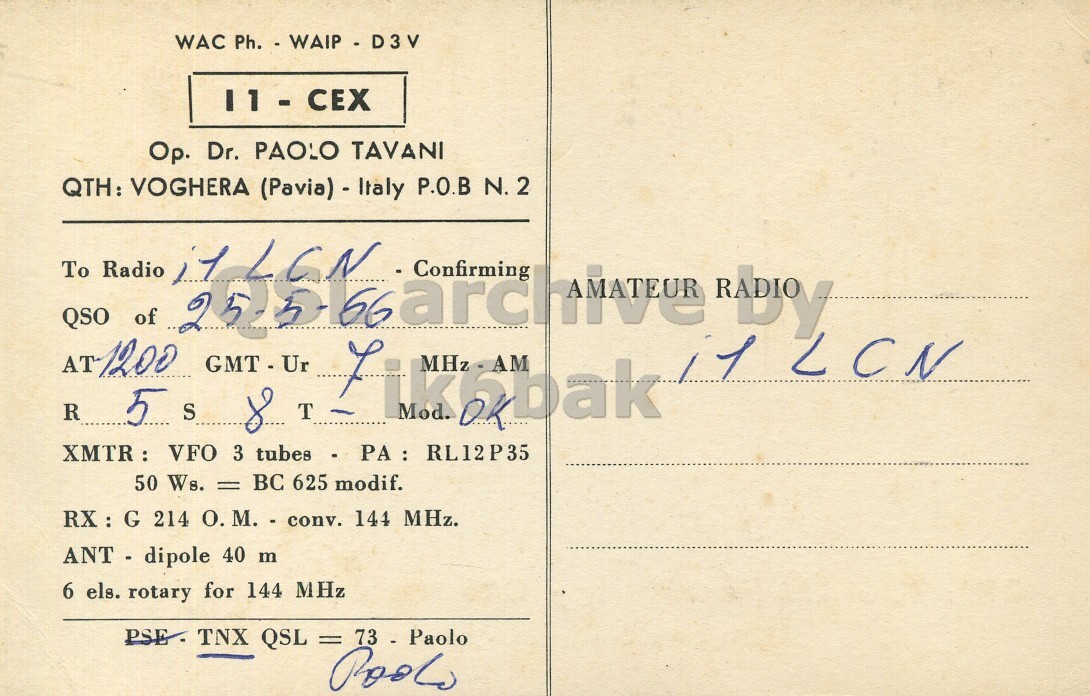 WAC Ph. - WAIP - D3V
I1 - CEX
Op. Dr. PAOLO TAVANI
QTH: VOGHERA (Pavia) - Italy P.O.B N. 2
To Radio i1 LCN - Confirming
QSO of 25-5-66
AT 1200 GMT - Ur 7 MHz - AM
R 5 S 8 T - Mod. OK
XMTR : VFO 3 tubes - PA : RL12P35
50 Ws. = BC 625 modif.
RX : G 214 O. M. - conv. 144 MHz.
ANT - dipole 40 m
6 els. rotary for 144 MHz
PSE - TNX QSL = 73 - Paolo
Paolo
AMATEUR RADIO
i1 LCN
QSL archive by
ik6bak